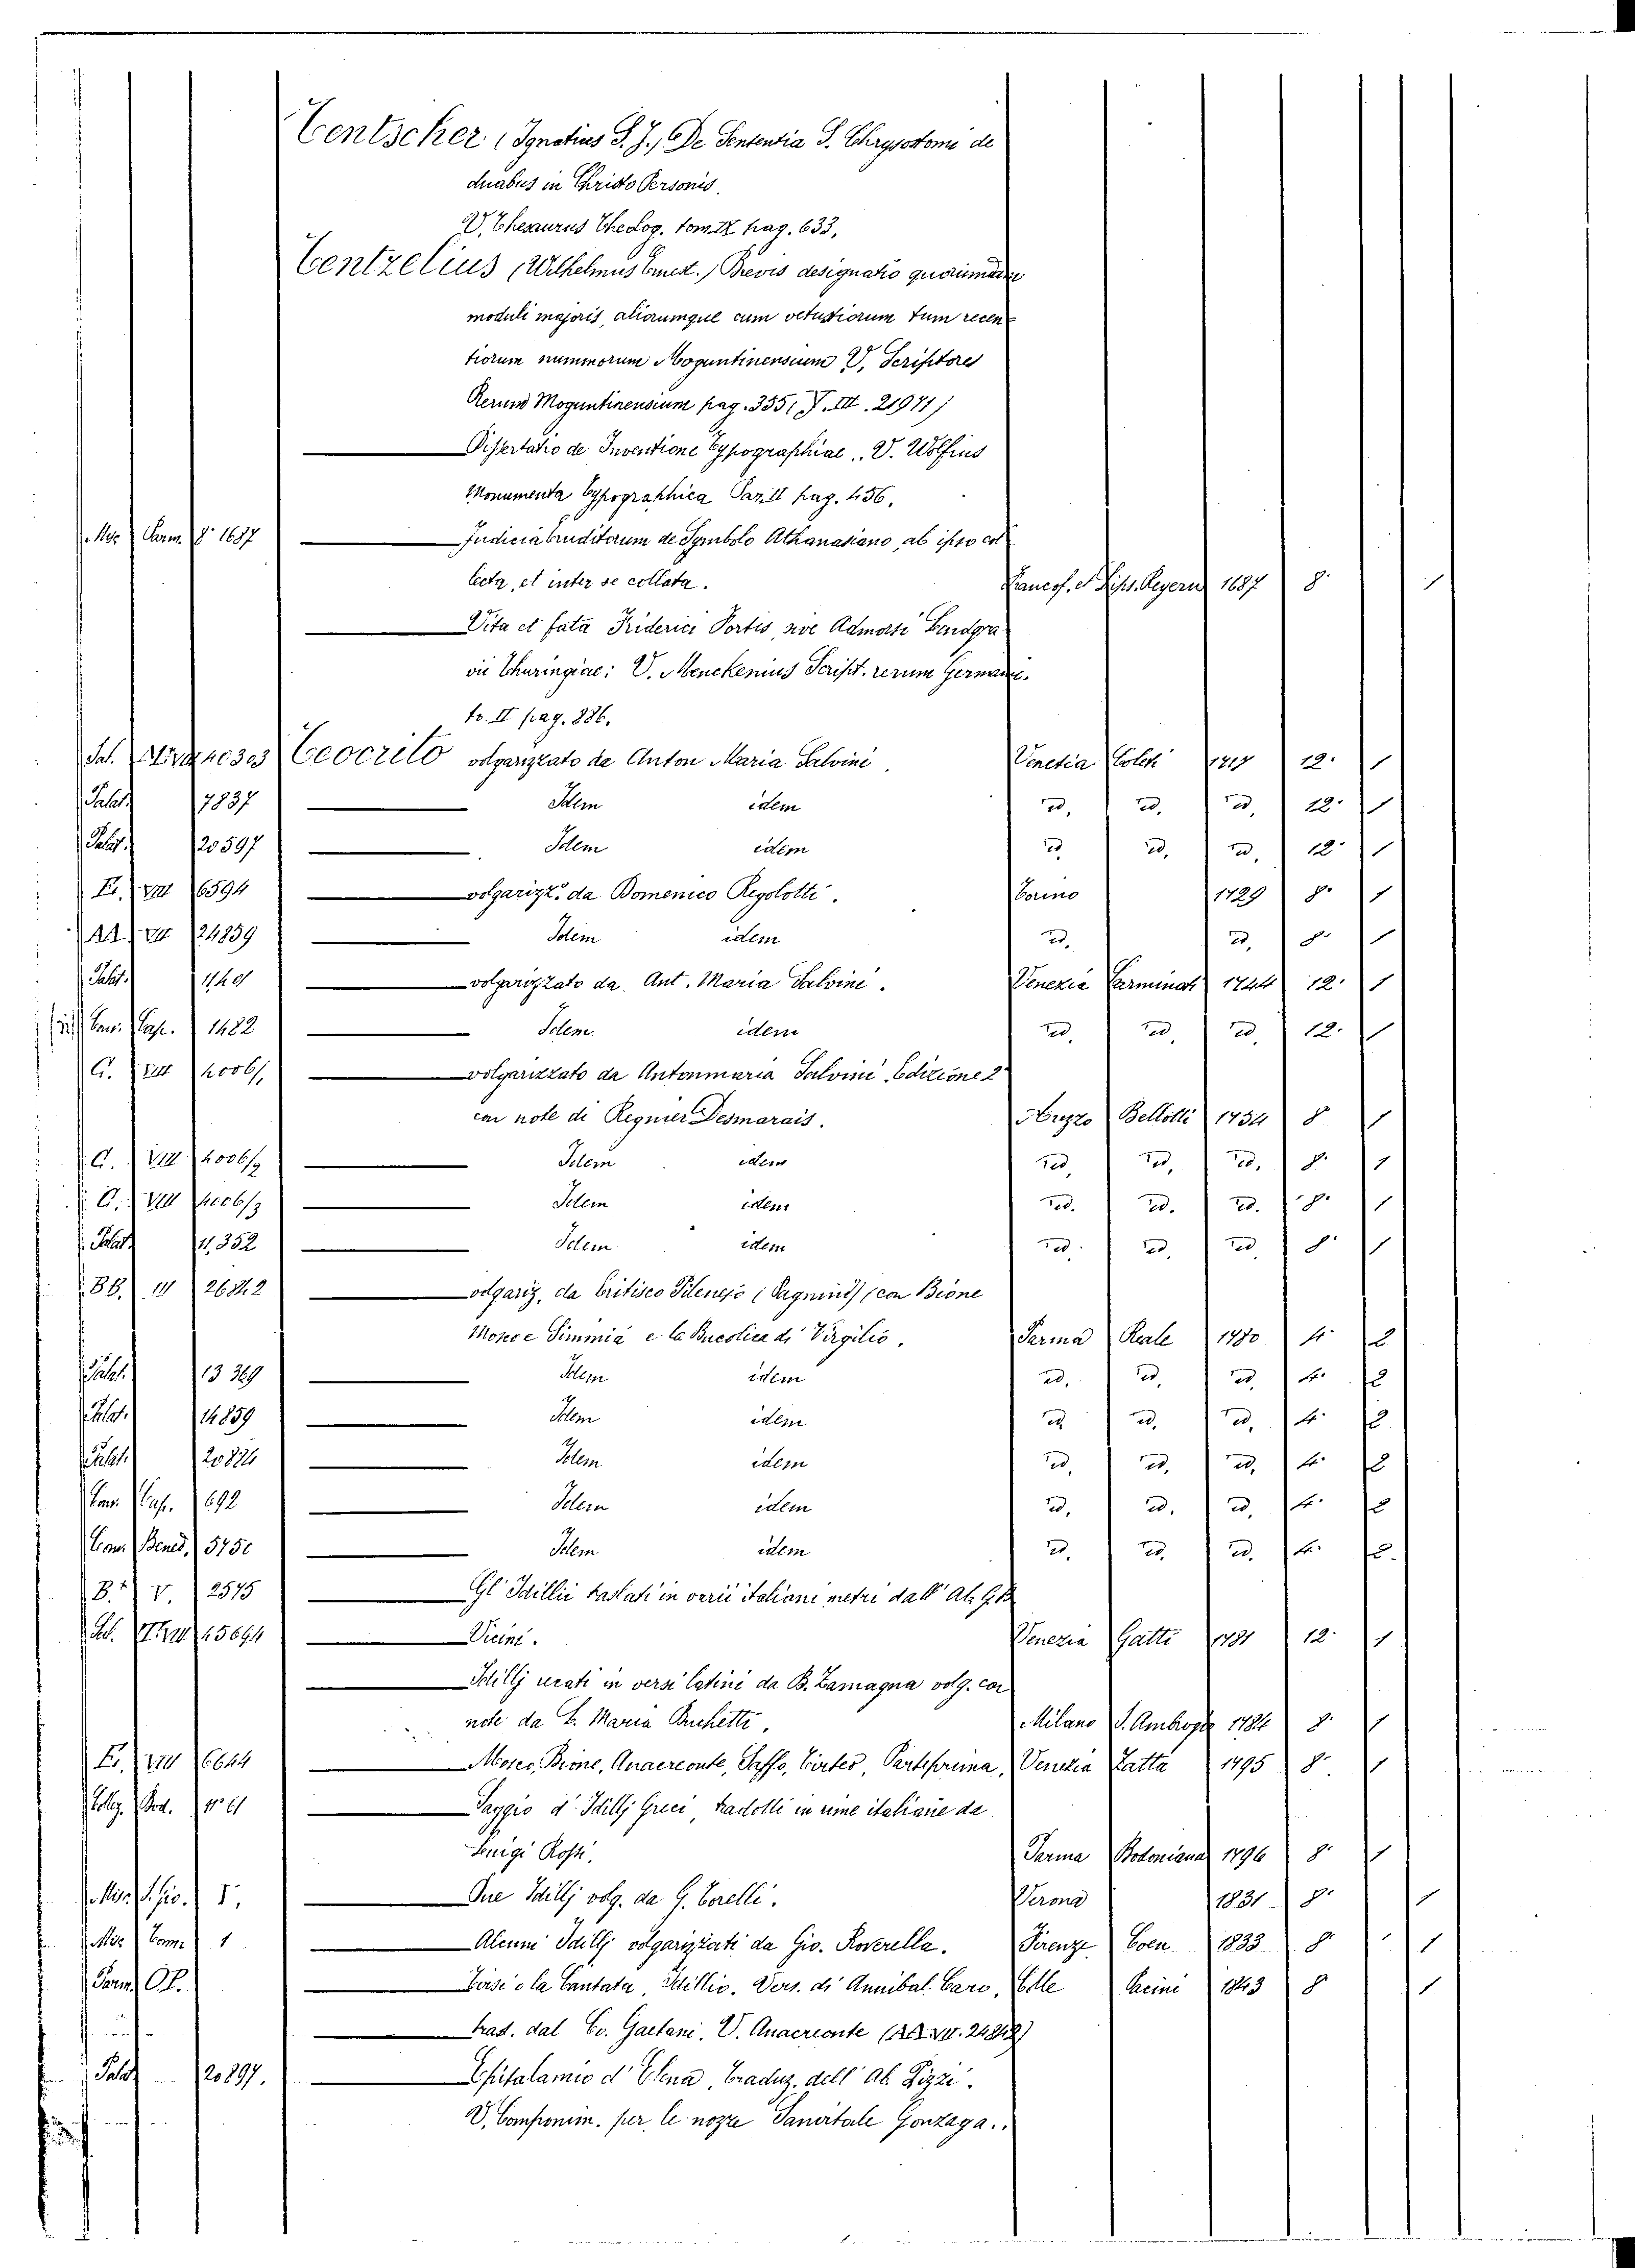 Tentscher (Ignatius S. J.) De Sententia S. Chrysostomi de
duabus in Christo Personis.
V. Thesaurus Theolog. tom. IX pag. 633,
Tentzelius (Wilhelmus Ernest.) Brevis designatio quorumdam
moduli majoris, aliorumque cum vetustiorum tum recen
tiorum nummorum Moguntinensium V. Scriptores
Rerum Moguntinensium pag. 355, T. III. 21971)
Dissertatio de Inventione Typographiae. V. Wolfius
Monumenta Typographica Par. II pag. 456.
Misc Parm. 8° 1687 Judicia Eruditorum de Symbolo Athanasiano, ab ipso col
lecta, et inter se collata. Francof. et Lips. Regern 1687 8° 1
Vita et fata Friderici Portis, sive Admorsi Landgra
vii Thuringiae: V. Menckenius Script. rerum Germanic.
to. II pag. 886.
Teocrito volgarizzato da Anton Maria Salvini Venetia Coleti 1717 12° 1
Palat. 7837 Idem idem id. id. id. 12° 1
Palat. 20597 Idem idem id. id. id. 12° 1
E. VIII 6594 volgarizz. da Domenico Regolotti. Torino 1729 8° 1
AA VII 24839 Idem idem id. id. 8° 1
Palat. volgarizzato da Ant. Maria Salvini. Venezia Carminati 1744 12° 1
Cap. 1482 Idem idem id. id. id. 12° 1
G. VIII 4006/1 volgarizzato da Antonmaria Salvini Edizione 2
con note di Regnier Desmarais. Arezzo Bellotti 1754 8 1
G. VIII 4006/2 Idem idem id. id. id. 8° 1
G. VIII 4006/3 Idem idem id. id. id. 8° 1
Palat. 11,352 Idem idem id. id. id. 8° 1
BB. VI 26842 volgariz. da Eritisco Pilenejo (Pagnini) (con Bione
Mosco e Simmia e la Bucolica di Virgilio. Parma Reale 1780 4° 2
Palat. 13369 Idem idem id. id. id. 4° 2
Palat. 14859 Idem idem id. id. id. 4° 2
Palat. 20824 Idem idem id. id. id. 4° 2
Cap. 692 Idem idem id. id. id. 4° 2
Bened. 5750 Idem idem id. id. id. 4° 2.
B. V. 2575 Gl' Idillii traslati in varii italiani metri dall' Ab. G. B.
25694 Vicini. Venezia Gatti 1781 12° 1
Idillj recati in versi latini da B. Zamagna volg. con
note da L. Maria Buchetti. Milano S. Ambrogio 1784 8° 1
E. VIII 6644 Mosco, Bione, Anacreonte, Saffo, Tirteo, Parte prima, Venezia Zatta 1795 8° 1
Colleg. Bod. Saggio d' Idillj Greci tradotti in rime italiane da
Luigi Rossi. Parma Bodoniana 1796 8° 1
Misc. S. Gio. I. Due Idillj volg. da G. Torelli. Verona 1831 8° 1
Misc Comm 1 Alcuni Idillj volgarizzati da Gio. Roverella. Firenze Coen 1833 8° 1
Parm. Op. Tirsi o la Cantata, Idillio. Vers. di Annibal Caro, Colle Pacini 1843 8 1
trad. dal Co. Gaetani. V. Anacreonte (AA. VII. 24842)
Palat. 20897. Epitalamio d' Elena, Traduz. dell' Ab. Pizzi.
V. Componim. per le nozze Sanvitale Gonzaga.